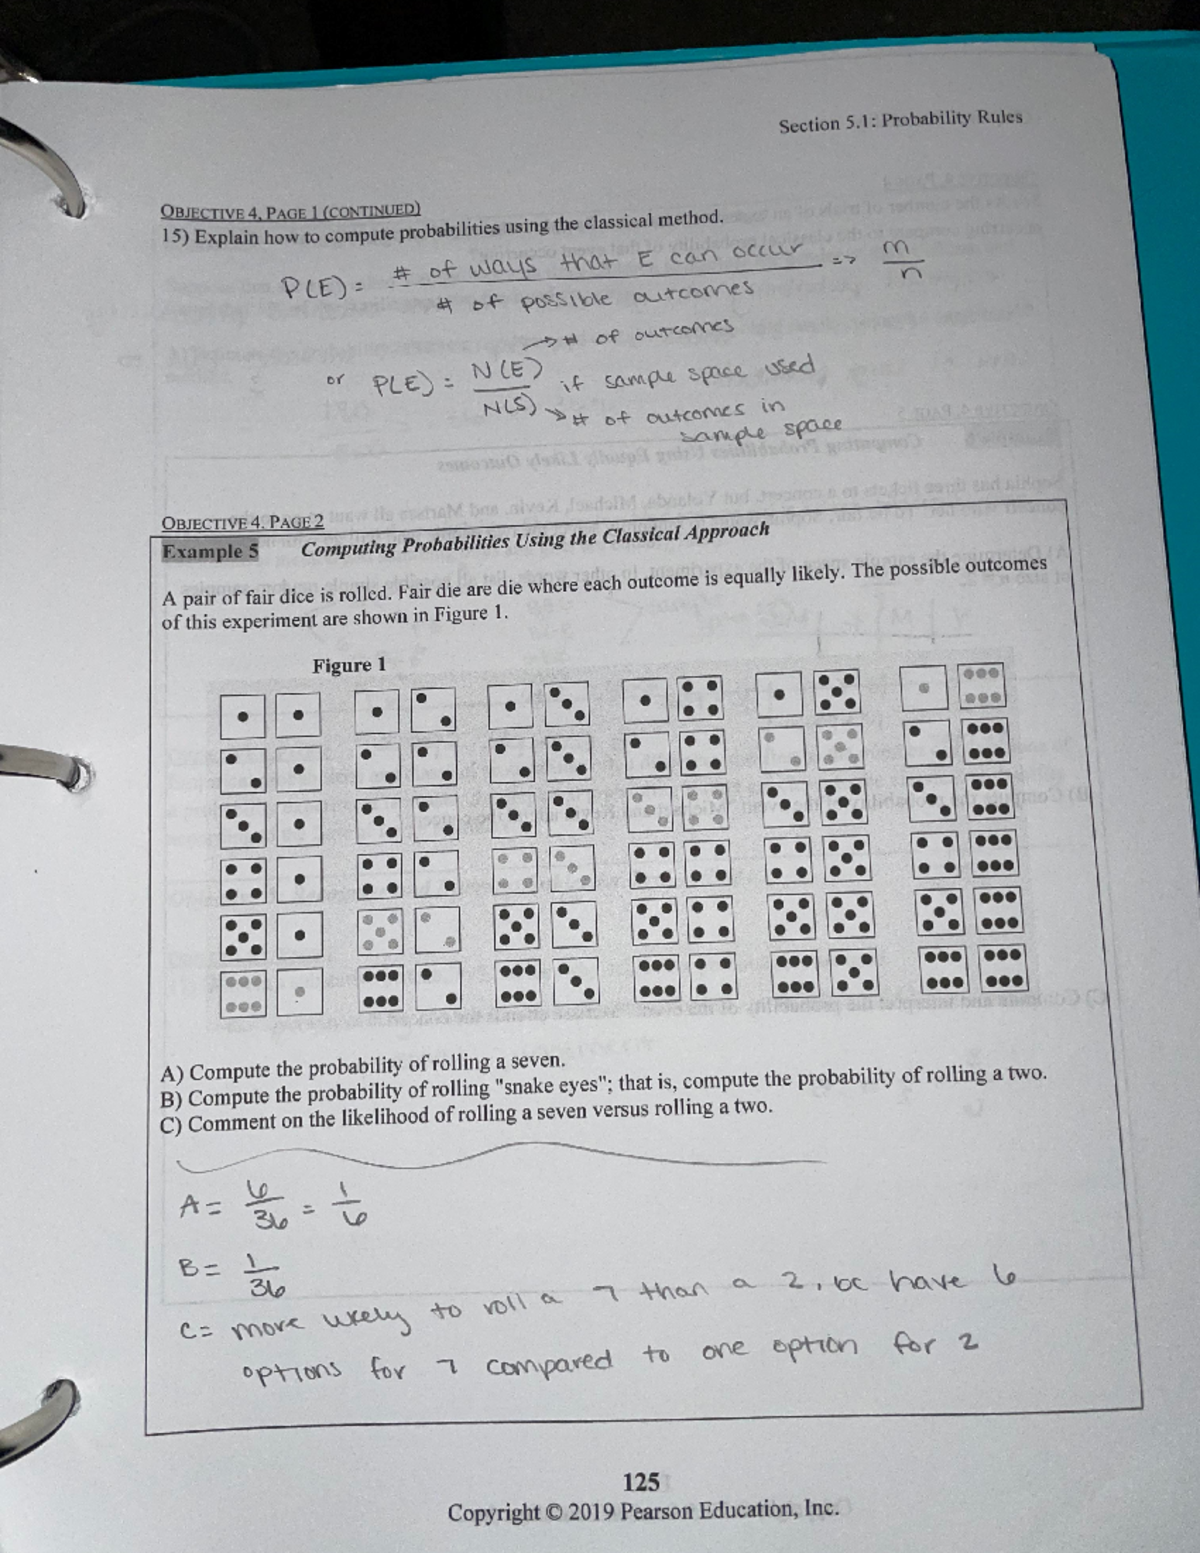 Section 5.1: Probability Rules
OBJECTIVE 4, PAGE 1 (CONTINUED)
15) Explain how to compute probabilities using the classical method.
P(E) = # of ways that E can occur / # of possible outcomes => m/n
→ # of outcomes
or P(E) = N(E) / N(S) if sample space used
→ # of outcomes in
sample space
OBJECTIVE 4, PAGE 2
Example 5 Computing Probabilities Using the Classical Approach
A pair of fair dice is rolled. Fair die are die where each outcome is equally likely. The possible outcomes
of this experiment are shown in Figure 1.
Figure 1
A) Compute the probability of rolling a seven.
B) Compute the probability of rolling "snake eyes"; that is, compute the probability of rolling a two.
C) Comment on the likelihood of rolling a seven versus rolling a two.
A = 6/36 = 1/6
B = 1/36
C = more likely to roll a 7 than a 2, bc have 6
options for 7 compared to one option for 2
125
Copyright © 2019 Pearson Education, Inc.